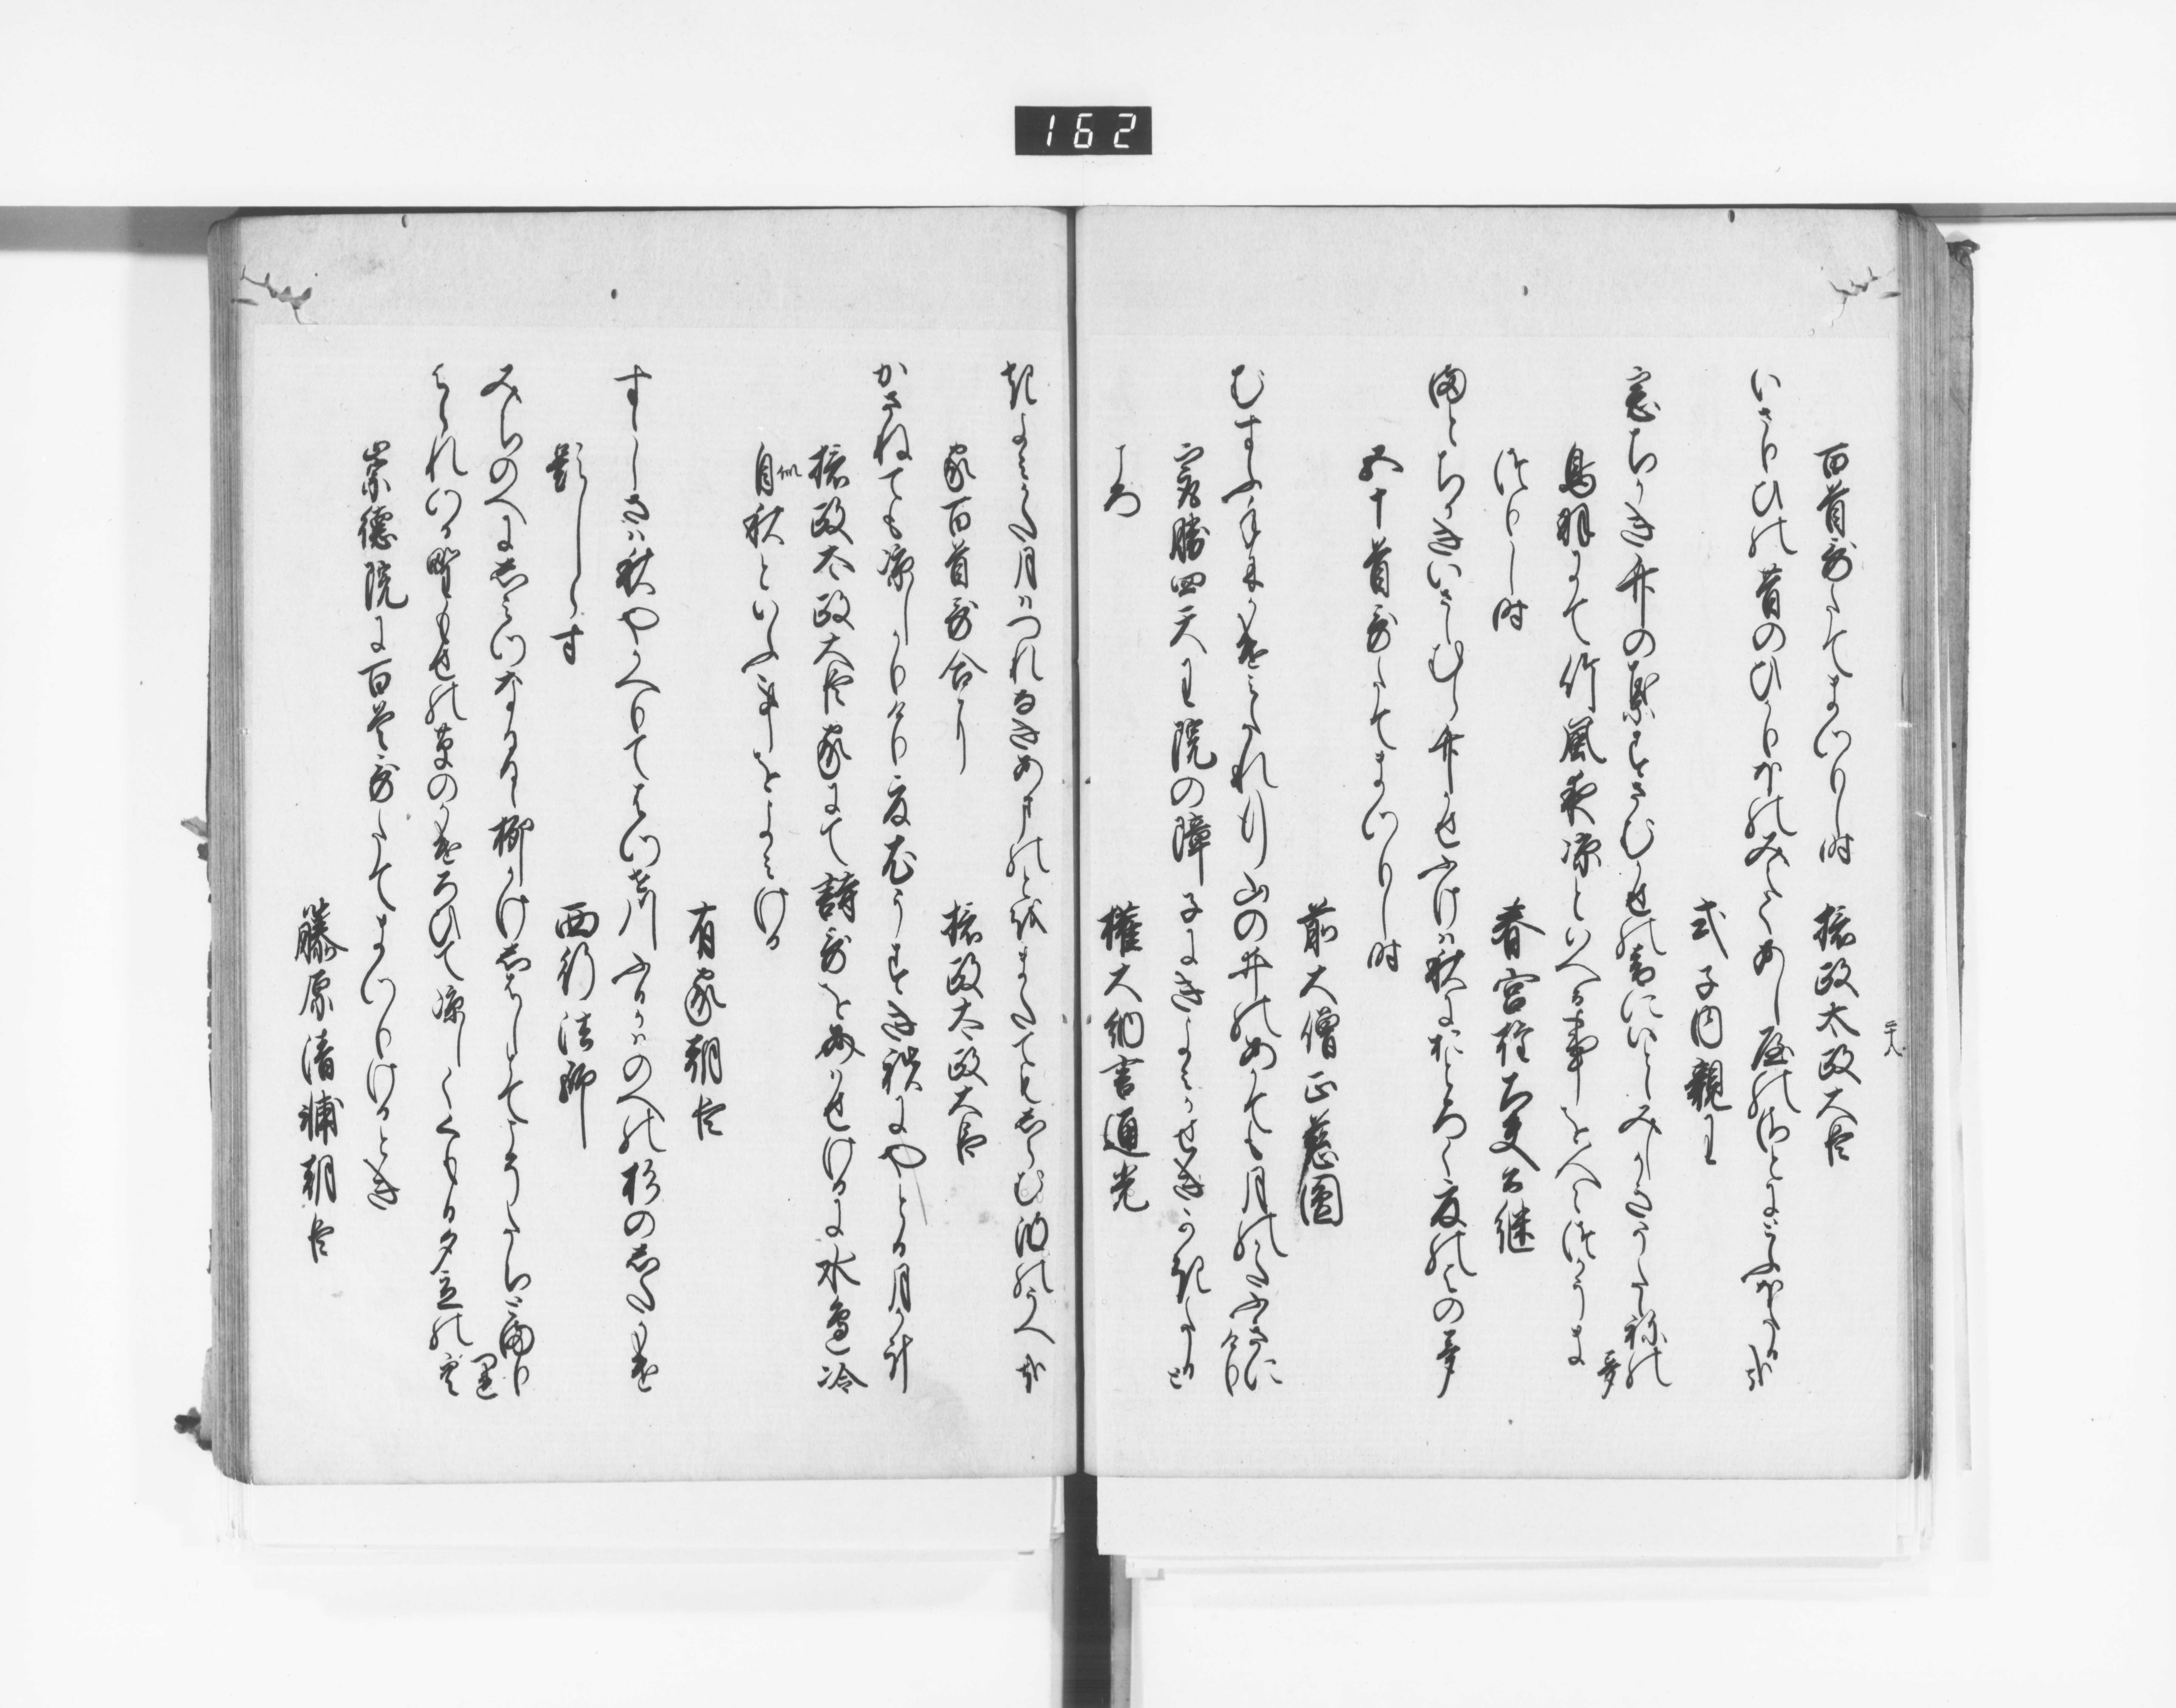 162
百首哥たてまつりし時　摂政太政大臣
いさり火の昔のひかりほのみえてあしやの里にとふほたるかな
二十八
式子内親王
窓ちかき竹の葉すさむ風の音にいとゝみしかきうたゝねの夢
鳥羽にて竹風夜涼といへる事を人〱つかうま
つりし時　春宮権大夫公継
窓ちかきいさゝむら竹風ふけは秋におとろく夏の夜の夢
五十首哥たてまつりし時
前大僧正慈圓
むすふ手にかけみたれ行山の井のあかても月のかたふきにけり
最勝四天王院の障子にきよみかせきかきたると
ころ　権大納言通光
きよみかた月はつれなきあまの戸をまたてもしらむ波のうへ哉
家百首哥合に　摂政太政大臣
かさねても凉しかりけり夏衣うすき袂にやとる月影
摂政太政大臣家にて詩哥をあはせけるに水邊冷
自秋といふ事をよみける
有家朝臣
すゝしさは秋やかへりてはつせ川ふる川のへの杉のしたかけ
題しらす　西行法師
みちのへにしみつなかるゝ柳かけしはしとてこそたちとまりつれ
よられつる野もせの草のかけろひて凉しくくもる夕立の空
崇徳院に百首哥たてまつりけるとき
藤原清輔朝臣